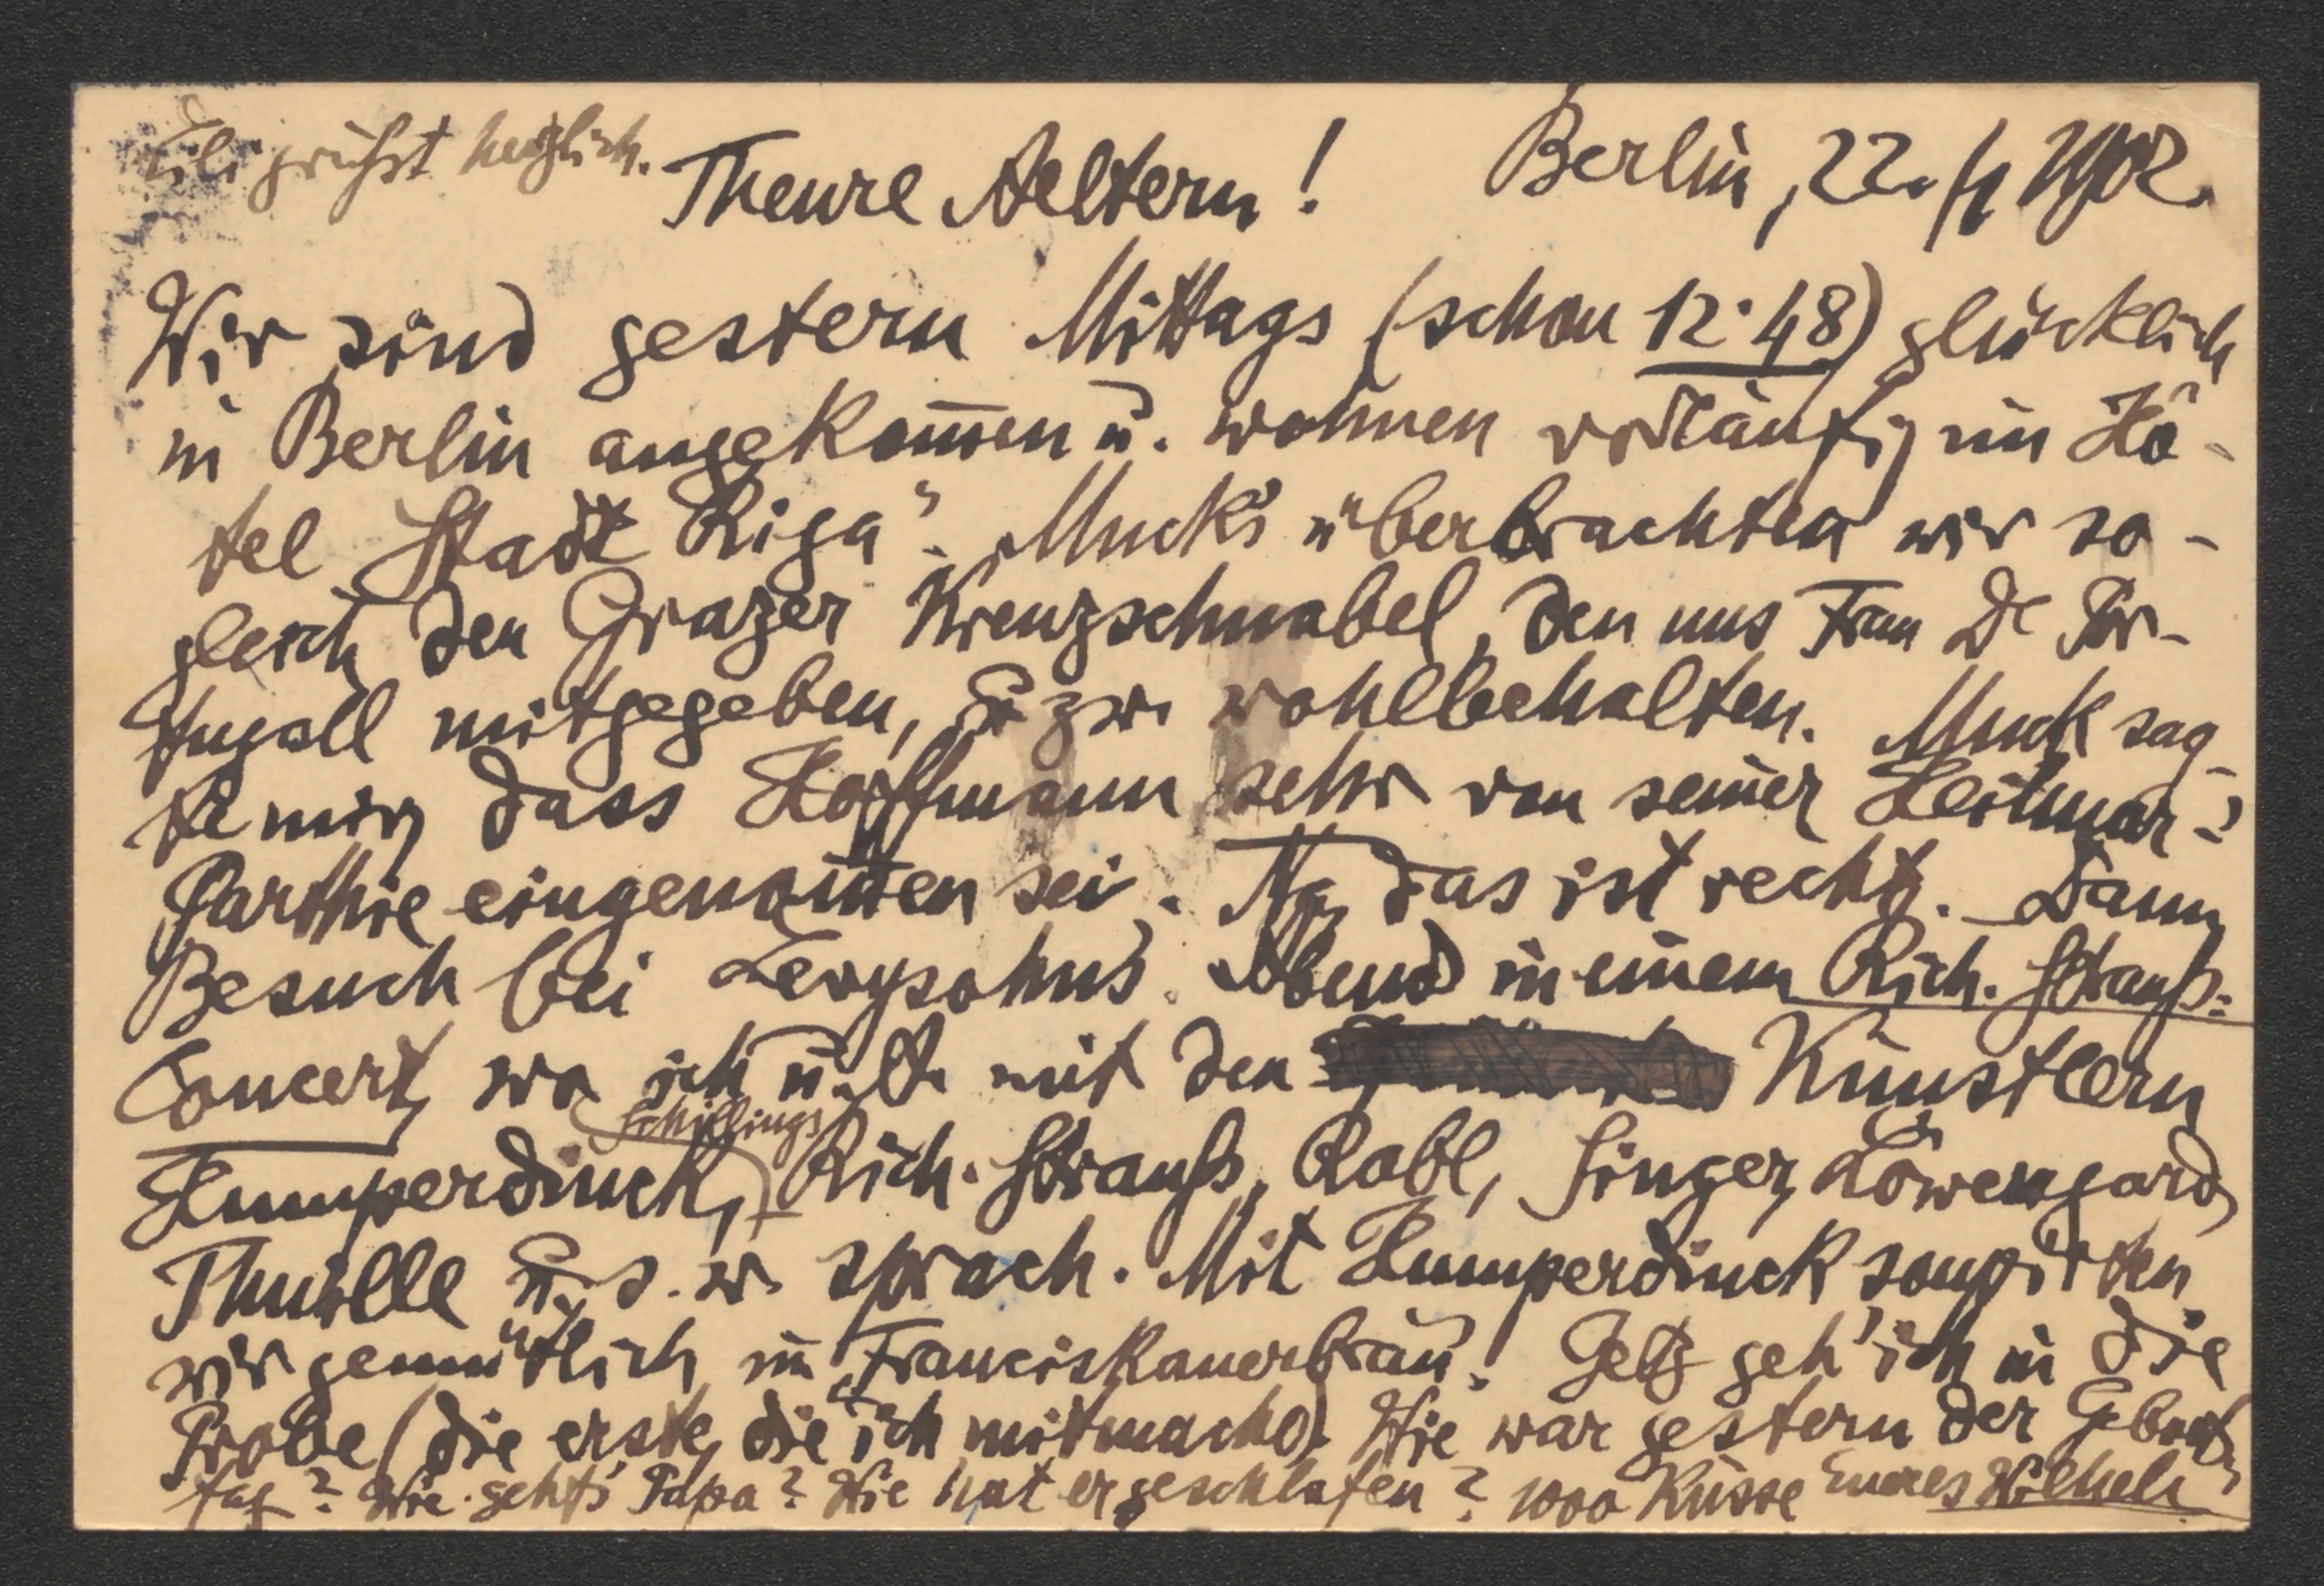 Lili grüßt herzlich.
Theure Aeltern! Berlin, 22./1 1902.
Wir sind gestern Mittags (schon 12·48) glücklich
in Berlin angekom̅en u. wohnen vorläufig im Hô-
tel „Stadt Riga“. Muck's überbrachten wir so-
gleich den Grazer Kreuzschnabel, den uns Frau Dr Por-
tugall mitgegeben, u. zw. wohlbehalten. Muck sag-
te mir, dass Hoffmann sehr von seiner
Parthie eingenom̅en sei. Na, das ist recht. Dann
Besuch bei Levysohns. Abend in einem Rich. Strauß-
Concert, wo ich u. L. mit den Künstlern
Humperdinck, Schillings, Rich. Strauß, Rabl, Singer, Löwengard,
Thuille u. s. w. sprach. Mit Humperdinck soupirten
wir gemütlich im „Franciskanerbräu“. Jetz geh' ich in die
Probe (die erste, die ich mitmache). Wie war gestern der Geburts-
tag? Wie geht's Papa? Wie hat er geschlafen? 1000 Küsse Eueres Wilheli